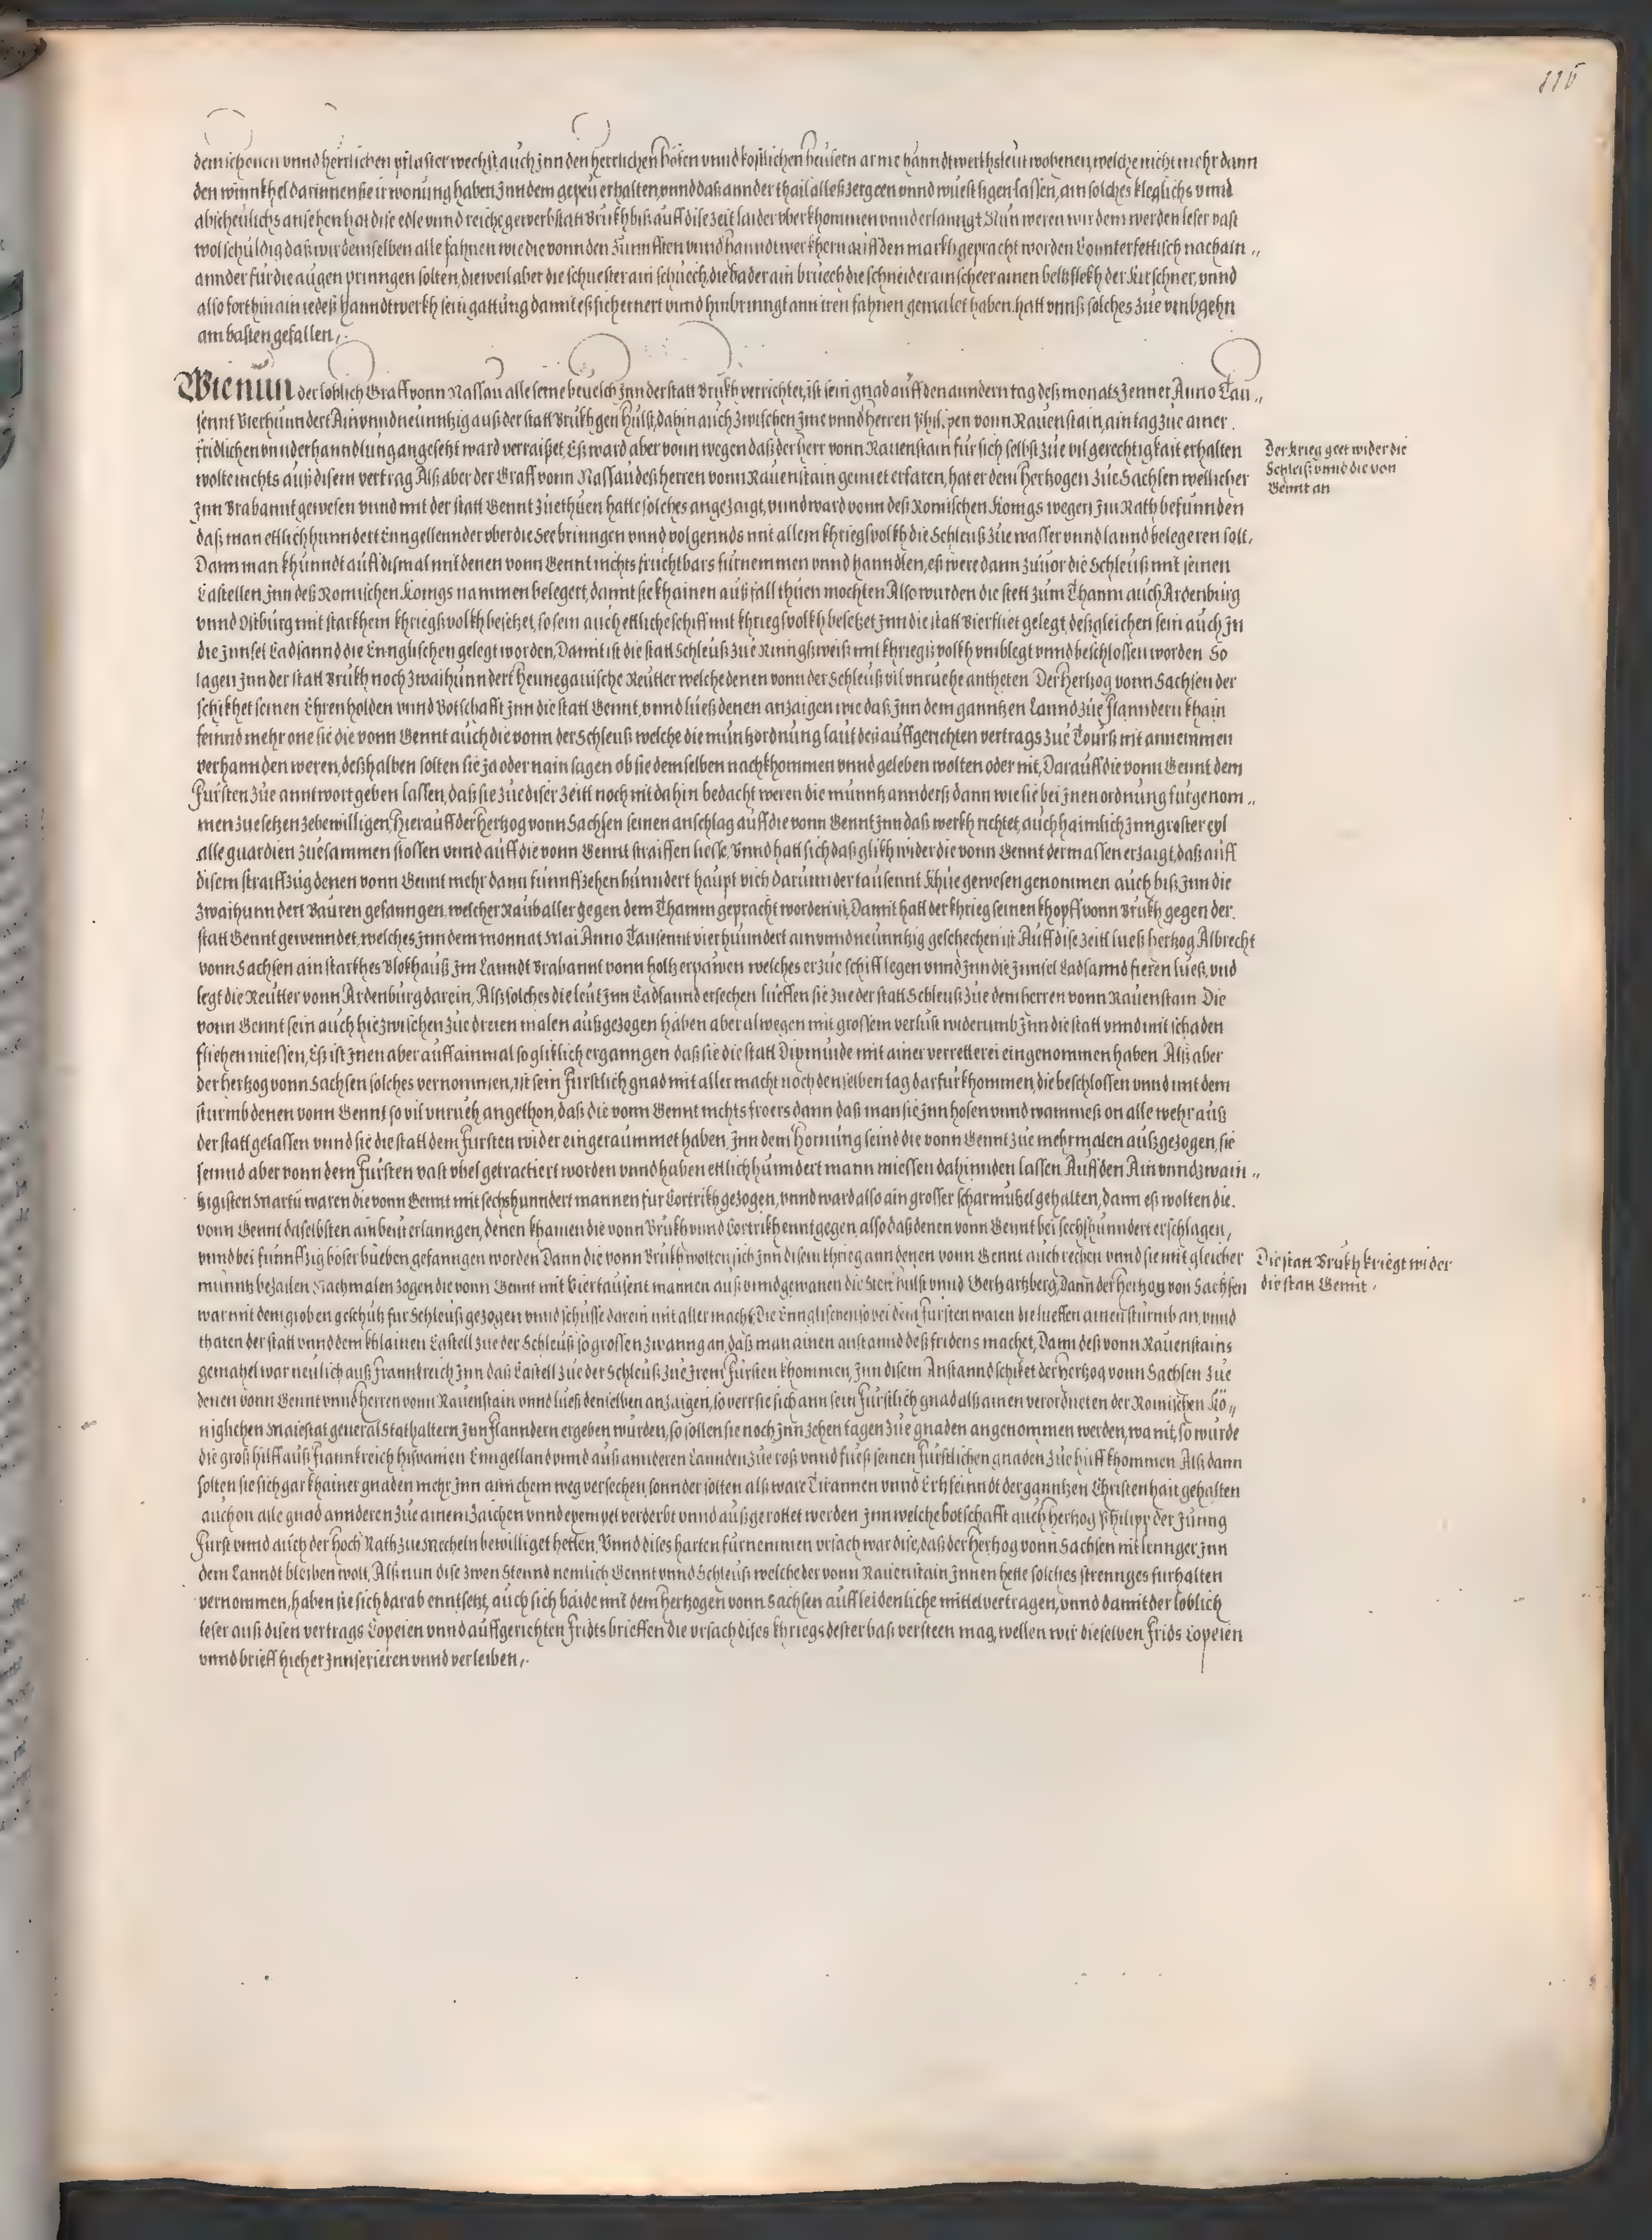 115
dem schenen vnnd herrlichen pflaster wechst, auch Jnn den herrlichen höfen vnnd kostlichen heusern arme hanndtwerkhsleut wohenen, welche nicht mehr dann
den winnkhel darinnen sie ir wonung haben, Jnn dem gepeu erhalten, vnnd daß annder thail alleß zergeen vnnd wuest ligen lassen, ain solches kleglichs vnnd
abscheulichs ansehen hat dise edle vnnd reiche gewerbstatt Brukh biß auff dise zeit laider vberkhommen vnnd erlanngt. Nun weren wir dem werden leser vast
wol schuldig daß wir demselben alle fahnen wie die vonn den Zunnfften vnnd hanndtwerkhern auff den markh gepracht worden Connterfettisch nach ain „
annder für die augen prinngen solten, dieweil aber die schuester ain schuech, die Bader ain bruech die schneider ain scheer ainen beltzflekh der Kirschner, vnnd
also forthin ain iedeß hanndtwerkh sein gattung damit eß sich ernert vnnd hinbringt ann iren fahnen gemalet haben. hatt vnnß solches zue vmbgehn
am basten gefallen,
Wie nun der loblich Graff vonn Nassau alle seine beuelch Jnn der statt Brukh verrichtet, ist sein gnad auff den anndern tag deß monats Jenner Anno Tau „
sennt Vierhunndert Ain vnnd neunntzig auß der statt Brukh gen Hulst, dahin auch zwischen Jme vnnd herren Philippen vonn Rauenstain, ain tag zue ainer
fridlichen vnnderhanndlung angesetzt ward verraißet, Eß ward aber vonn wegen daß der herr vonn Rauenstain für sich selbst zue vil gerechtigkait erhalten
wolte nichts auß disem vertrag. Alß aber der Graff vonn Nassau deß herren vonn Rauenstain gemiet erfaren, hat er dem Hertzogen zue Sachsen wellicher
Jnn Brabannt gewesen vnnd mit der statt Gennt zuethuen hatte solches angezaigt, vnnd ward vonn deß Romischen Konigs wegen Jm Rath befunnden
daß man ettlich hunndert Enngellennder vber die See brinngen vnnd volgennds mit allem khriegßvolkh die Schleuß zue wasser vnnd lannd belegeren solt,
Dann man khunndt auff dißmal mit denen vonn Gennt nichts fruchtbars fürnemmen vnnd hanndlen, eß were dann zuuor die Schleuß mit seinen
Castellen Jnn deß Romischen Konigs nammen belegert, damit sie khainen außfall thuen mochten Also wurden die stett zum Thamm auch Ardenburg
vnnd Ostburg mit starkhem khriegßvolkh besetzet, so sein auch ettliche schiff mit khriegsvolkh besetzet Jnn die statt Bierfliet gelegt, deßgleichen sein auch Jn
die Jnnsel Cadsannd die Ennglischen gelegt worden, Damit ist die statt Schleuß zue Rinngßweiß mit khriegßvolkh vmblegt vnnd beschlossen worden So
lagen Jnn der statt Brukh noch zwaihunndert Hennegauische Reutter welche denen vonn der Schleuß vil vnruehe antheten Der Hertzog vonn Sachsen der
schikhet seinen Ehrenholden vnnd Botschafft Jnn die statt Gennt, vnnd lueß denen anzaigen wie daß Jnn dem ganntzen Lannd zue Flanndern khain
feinnd mehr one sie die vonn Gennt auch die vonn der Schleuß welche die müntzordnung laut deß auffgerichten vertrags zue Tourß nit annemmen
verhannden weren, deßhalben solten sie Ja oder nain sagen ob sie demselben nachkhommen vnnd geleben wolten oder nit, Darauff die vonn Gennt dem
Fürsten zue anntwort geben lassen, daß sie zue diser zeitt noch nit dahin bedacht weren die münntz annderß dann wie sie bei Jnen ordnung fürgenom „
men zuesetzen zebewilligen, hierauff der Hertzog vonn Sachsen seinen anschlag auff die vonn Gennt Jnn daß werkh richtet, auch haimlich Jnn groster eyl
alle guardien zuesammen stossen vnnd auff die vonn Gennt straiffen liesse, Vnnd hatt sich daß glikh wider die vonn Gennt dermassen erzaigt, daß auff
disem straiffzug denen vonn Gennt mehr dann funnffzehen hunndert haupt vich darunnder tausennt Khüe gewesen genommen auch biß Jnn die
zwaihunndert Bauren gefanngen, welcher Raub aller gegen dem Thamm gepracht worden ist, Damit hatt der khrieg seinen khopff vonn Brukh gegen der
statt Gennt gewenndet, welches Jnn dem monnat Mai Anno Tausennt vierhunndert ain vnnd neunntzig geschechen ist Auff dise zeitt lueß hertzog Albrecht
vonn Sachsen ain starkhes Blokhauß Jm Lanndt Brabannt vonn holtz erpawen welches er zue schiff legen vnnd Jnn die Jnnsel Cadsannd fieren lueß, vnd
legt die Reutter vonn Ardenburg darein, Alß solches die leut Jnn Cadsannd ersechen lueffen sie zue der statt Schleuß zue dem herren vonn Rauenstain Die
vonn Gennt sein auch hiezwischen zue dreien malen außgezogen haben aber alwegen mit grossem verlust widerumb Jnn die statt vnnd mit schaden
fliehen miessen, Eß ist Jnen aber auff ainmal so gliklich erganngen daß sie die statt Dixmuide mit ainer verretterei eingenommen haben Alß aber
der hertzog vonn Sachsen solches vernommen, ist sein Fürstlich gnad mit aller macht noch denselben tag darfür khommen, die beschlossen vnnd mit dem
sturmb denen vonn Gennt so vil vnrueh angethon, daß die vonn Gennt nichts froers dann daß man sie Jnn hosen vnnd wammeß on alle wehr auß
der statt gelassen vnnd sie die statt dem Fürsten wider eingeraummet haben, Jnn dem Hornung seind die vonn Gennt zue mehrmalen außgezogen, sie
seinnd aber vonn dem Fürsten vast vbel getractiert worden vnnd haben ettlich hunndert mann miessen dahinnden lassen. Auff den Ain vnnd zwain „
tzigisten Martii waren die vonn Gennt mit sechshunndert mannen für Cortrikh gezogen, vnnd ward also ain grosser scharmutzel gehalten, dann eß wolten die
vonn Gennt daselbsten ain beut erlanngen, denen khamen die vonn Brukh vnnd Cortrikh enntgegen, also daß denen vonn Gennt bei sechshunndert erschlagen,
vnnd bei funnffzig böser bueben gefanngen worden Dann die vonn Brukh wolten sich Jnn disem khrieg ann denen vonn Gennt auch rechen vnnd sie mit gleicher
münntz bezalen Nachmalen zogen die vonn Gennt mit Viertausent mannen auß vnnd gewanen die Stett Hulst vnnd Gerhartsberg, Dann der Hertzog von Sachsen
war mit dem groben geschütz für Schleuß gezogen vnnd schusse darein mit aller macht, Die Ennglischen so bei dem Fürsten waren die lueffen ainen sturmb an, vnnd
thaten der statt vnnd dem khlainen Castell zue der Schleuß so grossen zwanng an, daß man ainen anstannd deß fridens machet, Dann deß vonn Rauenstains
gemahel war neulich auß Frannkreich Jnn daß Castell zue der Schleuß zue Jrem Fürsten khommen, Jnn disem Anstannd schiket der hertzog vonn Sachsen zue
denen vonn Gennt vnnd herren vonn Rauenstain vnnd lueß denselben anzaigen, so verr sie sich ann sein Fürstlich gnad alß ainen verordneten der Romischen Kö „
niglichen Maiestat general Stathaltern Jnn Flanndern ergeben wurden, so sollen sie noch Jnn zehen tagen zue gnaden angenommen werden, wa nit, so wurde
die groß hilff auß Frannkreich hispanien Enngelland vnnd auß annderen Lannden zue roß vnnd fueß seinen Fürstlichen gnaden zue hilff khommen Alß dann
solten sie sich gar khainer gnaden mehr Jnn ainichem weg versechen, sonnder solten alß ware Tirannen vnnd Erbfeinndt der ganntzen Christenhait gehalten
auch on alle gnad annderen zue ainem zaichen vnnd exempel verderbt vnnd außgerottet werden Jnn welche botschafft auch hertzog Philipp der Junng
Fürst vnnd auch der hoch Rath zue Mecheln bewilliget hetten, Vnnd dises harten fürnemmen vrsach war dise, daß der hertzog vonn Sachsen nit lennger Jnn
dem Lanndt bleiben wolt, Alß nun dise zwen Stennd nemlich Gennt vnnd Schleuß welche der vonn Rauenstain Jnnen hette solches strennges fürhalten
vernommen, haben sie sich darab enntsetzt, auch sich baide mit dem hertzogen vonn Sachsen auff leidenliche mittel vertragen, vnnd damit der loblich
leser auß disen vertrags Copeien vnnd auffgerichten Fridts brieffen die vrsach dises khriegs dester baß versteen mag, wellen wir dieselben Frids Copeien
vnnd brieff hieher Jnnserieren vnnd verleiben,
Der krieg geet wider die
Schleiß vnnd die von
Gennt an
Die statt Brukh kriegt wider
die statt Gennt